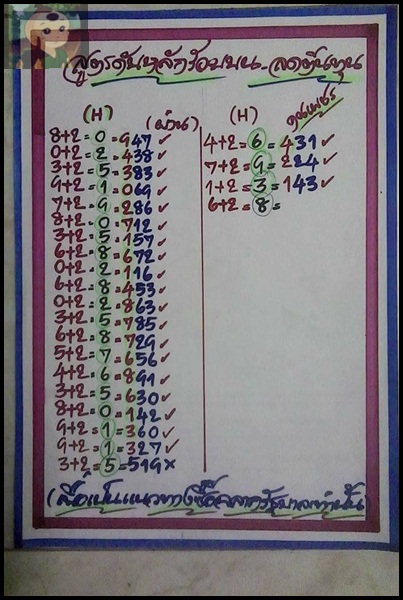 สูตรดับหลักร้อยบน - ลดต้นทุน
(H) (ผ่าน)
8+2=0=947✓
0+2=2=438✓
3+2=5=383✓
9+2=1=069✓
7+2=9=286✓
8+2=0=712✓
3+2=5=157✓
6+2=8=672✓
0+2=2=116✓
6+2=8=453✓
0+2=2=863✓
3+2=5=785✓
6+2=8=729✓
5+2=7=656✓
4+2=6=891✓
3+2=5=630✓
8+2=0=142✓
9+2=1=360✓
9+2=1=327✓
3+2=5=519×
(H)
4+2=6=431✓
7+2=9=224✓
1+2=3=143✓
6+2=8=
(สื่อเป็นแนวทางซื้อสลากรัฐบาลเท่านั้น)